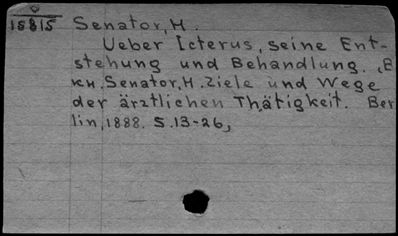 15815 Senator, H.
Ueber Icterus, seine Ent-
stehung und Behandlung.
Senator, H. Ziele und Wege
der ärztlichen Thätigkeit. Ber
lin, 1888. S. 13-26,